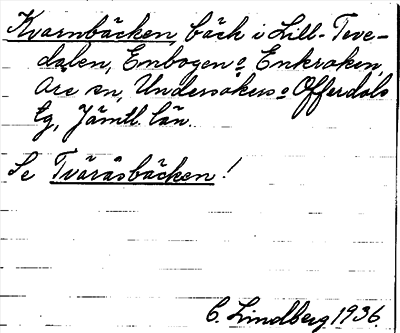 Kvarnbäcken, bäck i Lill-Teve-
dalen, Enbogen o Enkroken,
Åre sn, Undersåkers o Offerdals
tg, Jämtl. län.
Se Tväråsbäcken!
C. Lindberg 1936